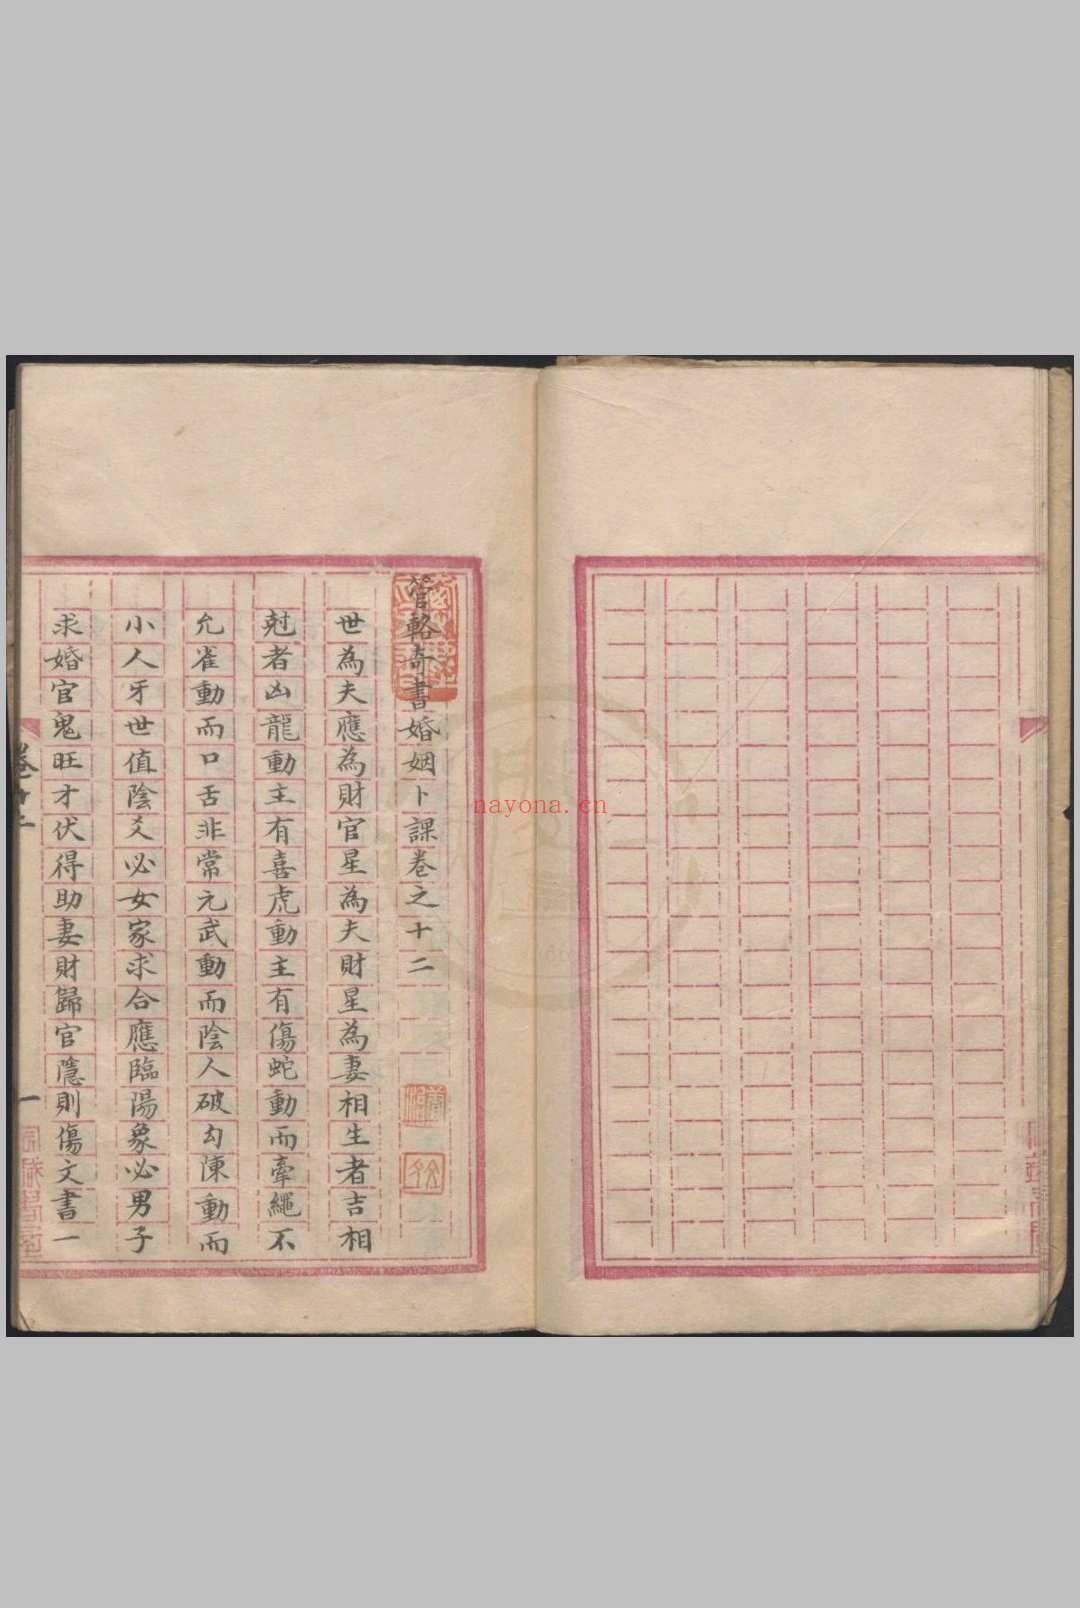 管輅奇書婚姻卜課卷之十二
世為夫應為財官星為夫財星為妻相生者吉相
尅者凶龍動主有喜虎動主有傷蛇動而牽繩不
允雀動而口舌非常元武動而陰人破勾陳動而
小人牙世值陰爻必女家求合應臨陽象必男子
求婚官鬼旺才伏得助妻財歸官隱則傷文書一
卷十二
一
nayona.cn